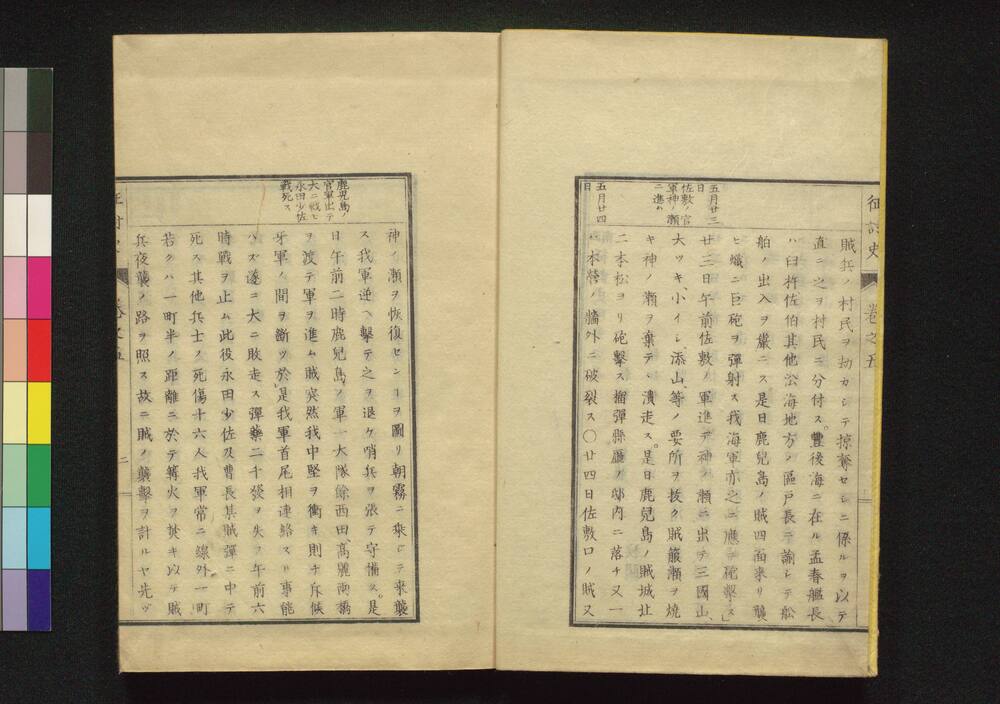 征討史
卷之五
賊兵ノ村民ヲ劫カシテ掠奪セシニ係ルヲ以テ
直ニ之ヲ村民ニ分付ス。豐後海ニ在ル孟春艦長
ハ臼杵佐伯其他沿海地方ノ區戸長ニ諭シテ舩
舶ノ出入ヲ嚴ニス是日鹿兒島ノ賊四面来リ襲
ヒ熾ニ巨砲ヲ彈射ス我海軍亦之ニ應シ砲撃ス」
五月廿三
日
佐敷ノ官
軍神ノ瀬
ニ進ム
廿三日午前佐敷ノ軍進テ神ノ瀬ニ出テ三國山、
大ツキ、小イシ、添山、等ノ要所ヲ拔ク賊箙瀬ヲ燒
キ神ノ瀬ヲ棄テヽ潰走ス。是日鹿兒島ノ賊城址
二本松ヨリ砲撃ス榴彈縣廳ノ邸内ニ落チ又一
五月廿四
日
ハ本營ノ牆外ニ破裂ス〇廿四日佐敷口ノ賊又
神ノ瀬ヲ恢復センヿヲ圖リ朝霧ニ乗シテ来襲
ス我軍逆ヘ撃テ之ヲ退ケ哨兵ヲ張テ守備ス。是
鹿兒島ノ
官軍出テ
大ニ戰ヒ
永田少佐
戰死ス
日午前二時鹿兒島ノ軍一大隊餘西田、高麗両橋
ヲ渡テ軍ヲ進ム賊突然我中堅ヲ衝キ則チ斥候
牙軍ノ間ヲ斷ツ於是我軍首尾相連絡スル事能
ハス遂ニ大ニ敗走ス彈藥二千發ヲ失フ午前六
時戰ヲ止ム此役永田少佐及曹長某賊彈ニ中テ
死ス其他兵士ノ死傷十六人我軍常ニ線外一町
若クハ一町半ノ距離ニ於テ篝火ヲ焚キ以テ賊
兵夜襲ノ路ヲ照ス故ニ賊ノ襲撃ヲ計ルヤ先ヅ
卷之五
二